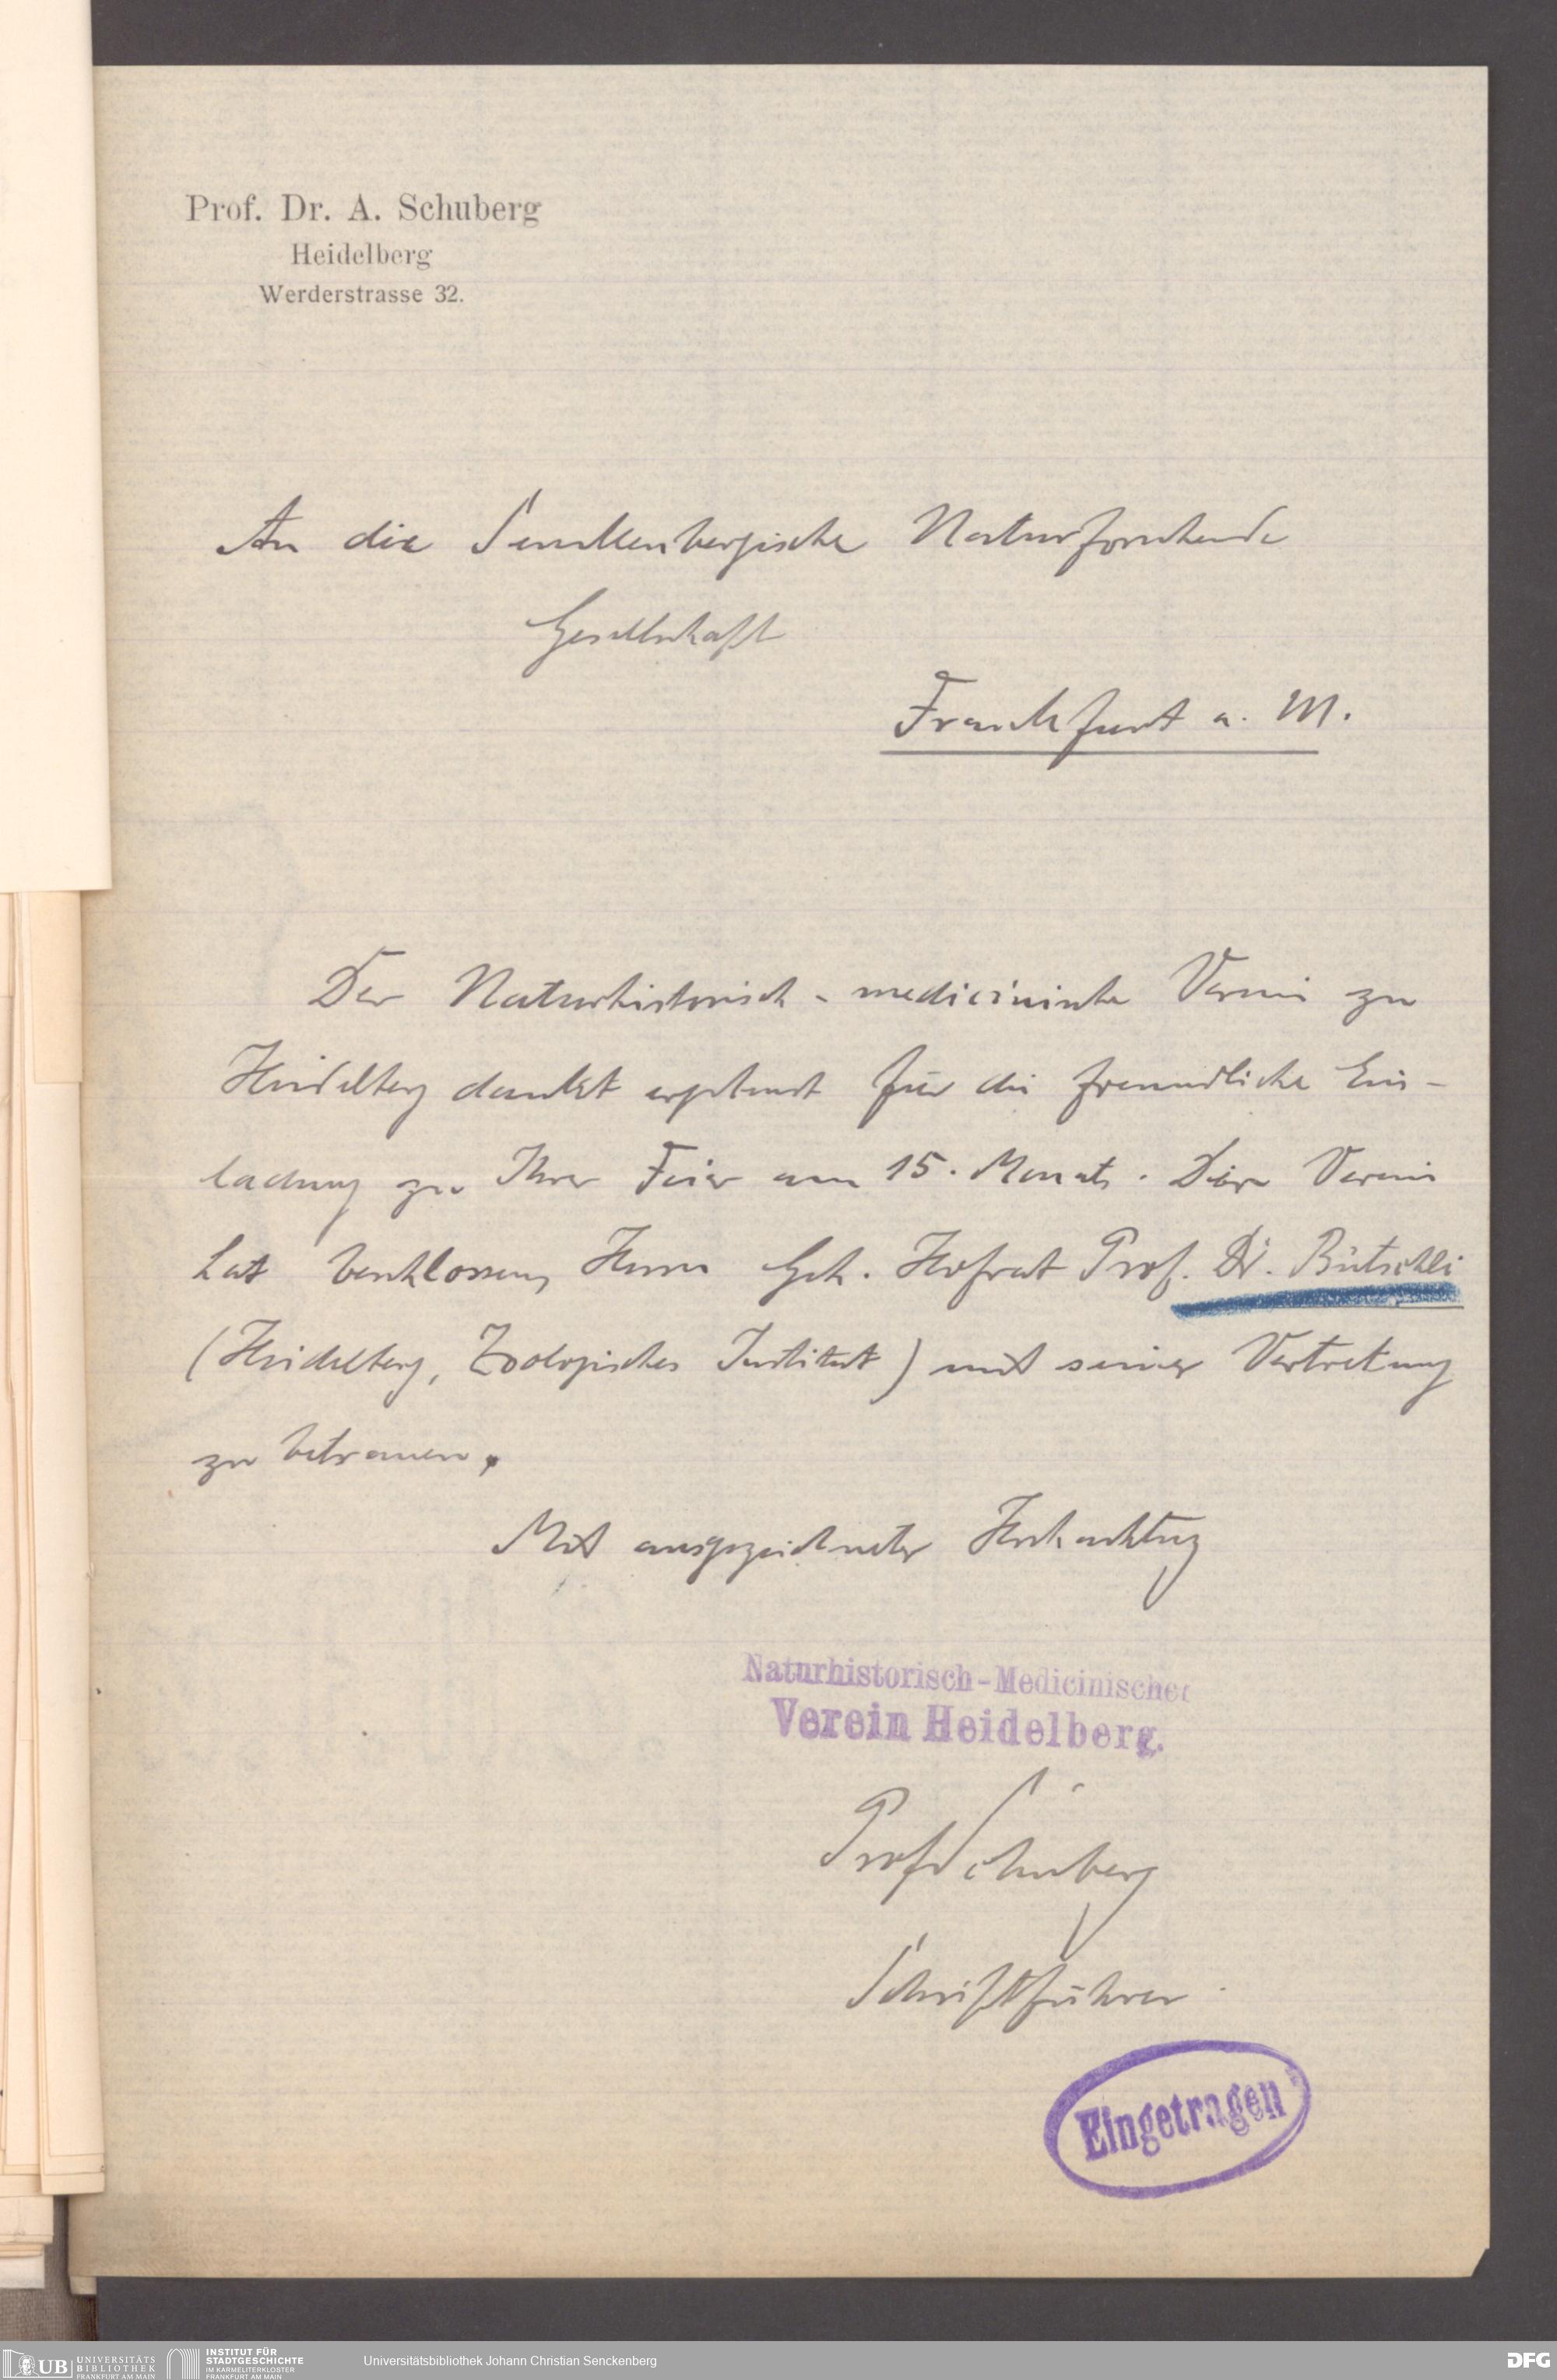 Prof. Dr. A. Schuberg
Heidelberg
Werderstrasse 32.
An die Senckenbergische Naturforschende
Gesellschaft
Frankfurt a. M.
Der Naturhistorisch-medicinische Verein zu
Heidelberg dankt ergebenst für die freundliche Ein-
ladung zu Ihrer Feier am 15. Monats. Der Verein
hat beschlossen, Herrn Geh. Hofrat Prof. Dr. Bütschli
(Heidelberg, Zoologisches Institut) mit seiner Vertretung
zu betrauen.
Mit ausgezeichneter Hochachtung
Naturhistorisch-Medicinischer
Verein Heidelberg.
Prof Schuberg
Schriftführer.
Eingetragen
UB UNIVERSITÄTS
BIBLIOTHEK
FRANKFURT AM MAIN
INSTITUT FÜR
STADTGESCHICHTE
IM KARMELITERKLOSTER
FRANKFURT AM MAIN
Universitätsbibliothek Johann Christian Senckenberg
DFG